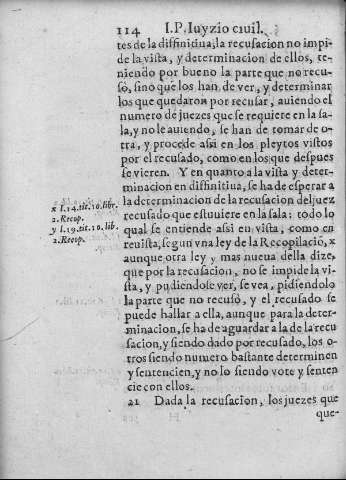 114 I.P. Iuyzio ciuil.
tes de la diffinitiua; la recusacion no impi-
de la vista, y determinacion de ellos, te-
niendo por bueno la parte que no recu-
sò, sino que los han de ver, y determinar
los que quedaron por recusar, auiendo el
numero de juezes que se requiere en la sa-
la, y no le auiendo, se han de tomar de o-
tra, y procede assi en los pleytos vistos
por el recusado, como en los que despues
se vieren. Y en quanto a la vista y deter-
minacion en diffinitiua, se ha de esperar a
la determinacion de la recusacion del juez
recusado que estuuiere en la sala: todo lo
qual se entiende assi en vista, como en
reuista, segun vna ley de la Recopilaciō, x
aunque otra ley y mas nueua della dize,
que por la recusacion, no se impide la vi-
sta, y pudiendose ver, se vea, pidiendolo
la parte que no recusò, y el recusado se
puede hallar a ella, aunque para la deter-
minacion, se ha de aguardar a la de la recu
sacion, y siendo dado por recusado, los o-
tros siendo numero bastante determinen
y sentencien, y no lo siendo vote y senten
cie con ellos.
21 Dada la recusacion, los juezes que
que-
x l.14. tit. 10. libr.
2. Recop.
y l.19. tit. 10. lib.
2. Recop.